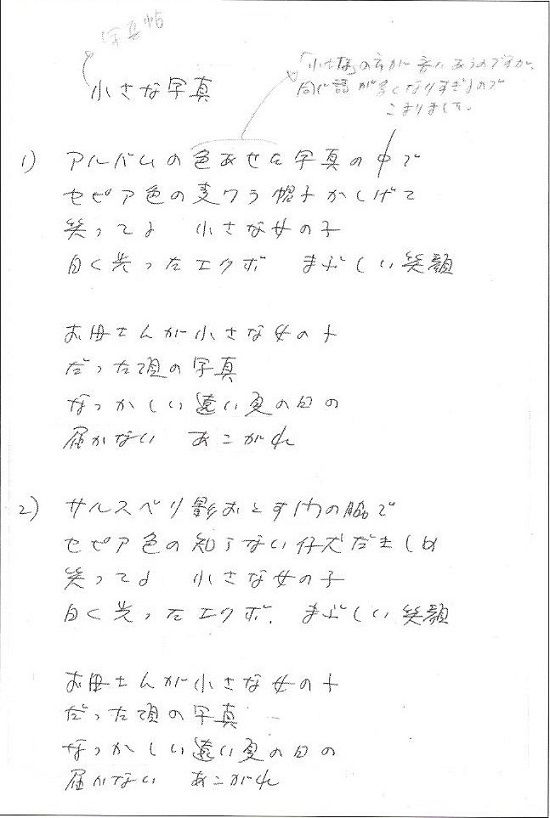 写真帖
小さな写真
「小さな」の方が音にあうのですが、
同じ語が多くなりすぎるので
こまりました。
1) アルバムの色あせた写真の中で
セピア色の麦ワラ帽子かしげて
笑ってよ 小さな女の子
白く光ったエクボ まぶしい笑顔
お母さんが小さな女の子
だった頃の写真
なつかしい遠い夏の日の
届かない あこがれ
2) サルスベリ影おとす門の脇で
セピア色の知らない仔犬だきしめ
笑ってよ 小さな女の子
白く光ったエクボ. まぶしい笑顔
お母さんが小さな女の子
だった頃の写真
なつかしい遠い夏の日の
届かない あこがれ